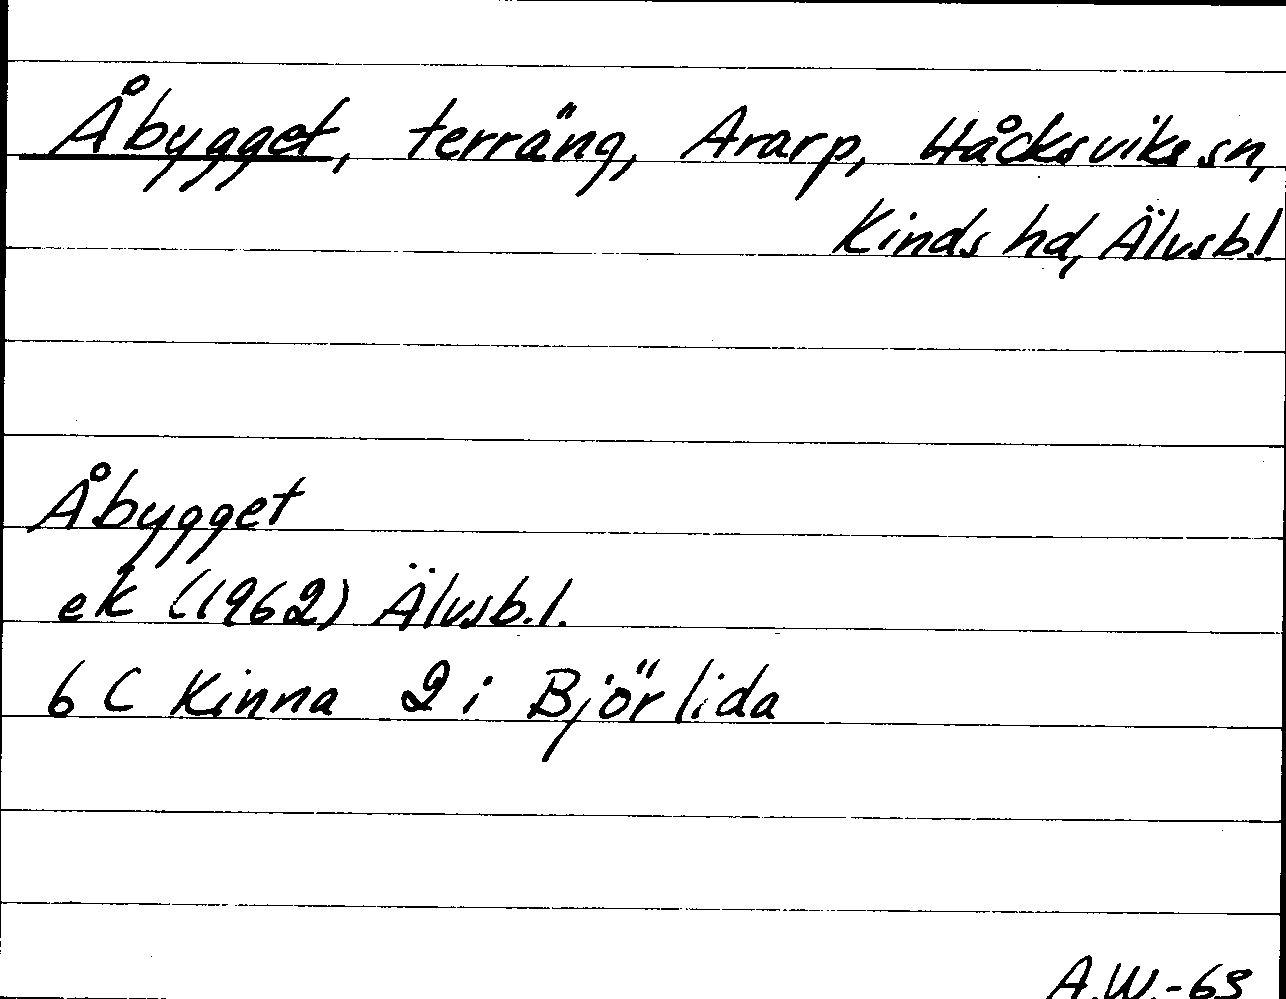 Åbygget, terräng, Ararp, Håcksviks sn,
Kinds hd, Älvsb.l
Åbygget
ek (1962) Älvsb.l.
6 C Kinna 2 i Björlida
A.W.-63